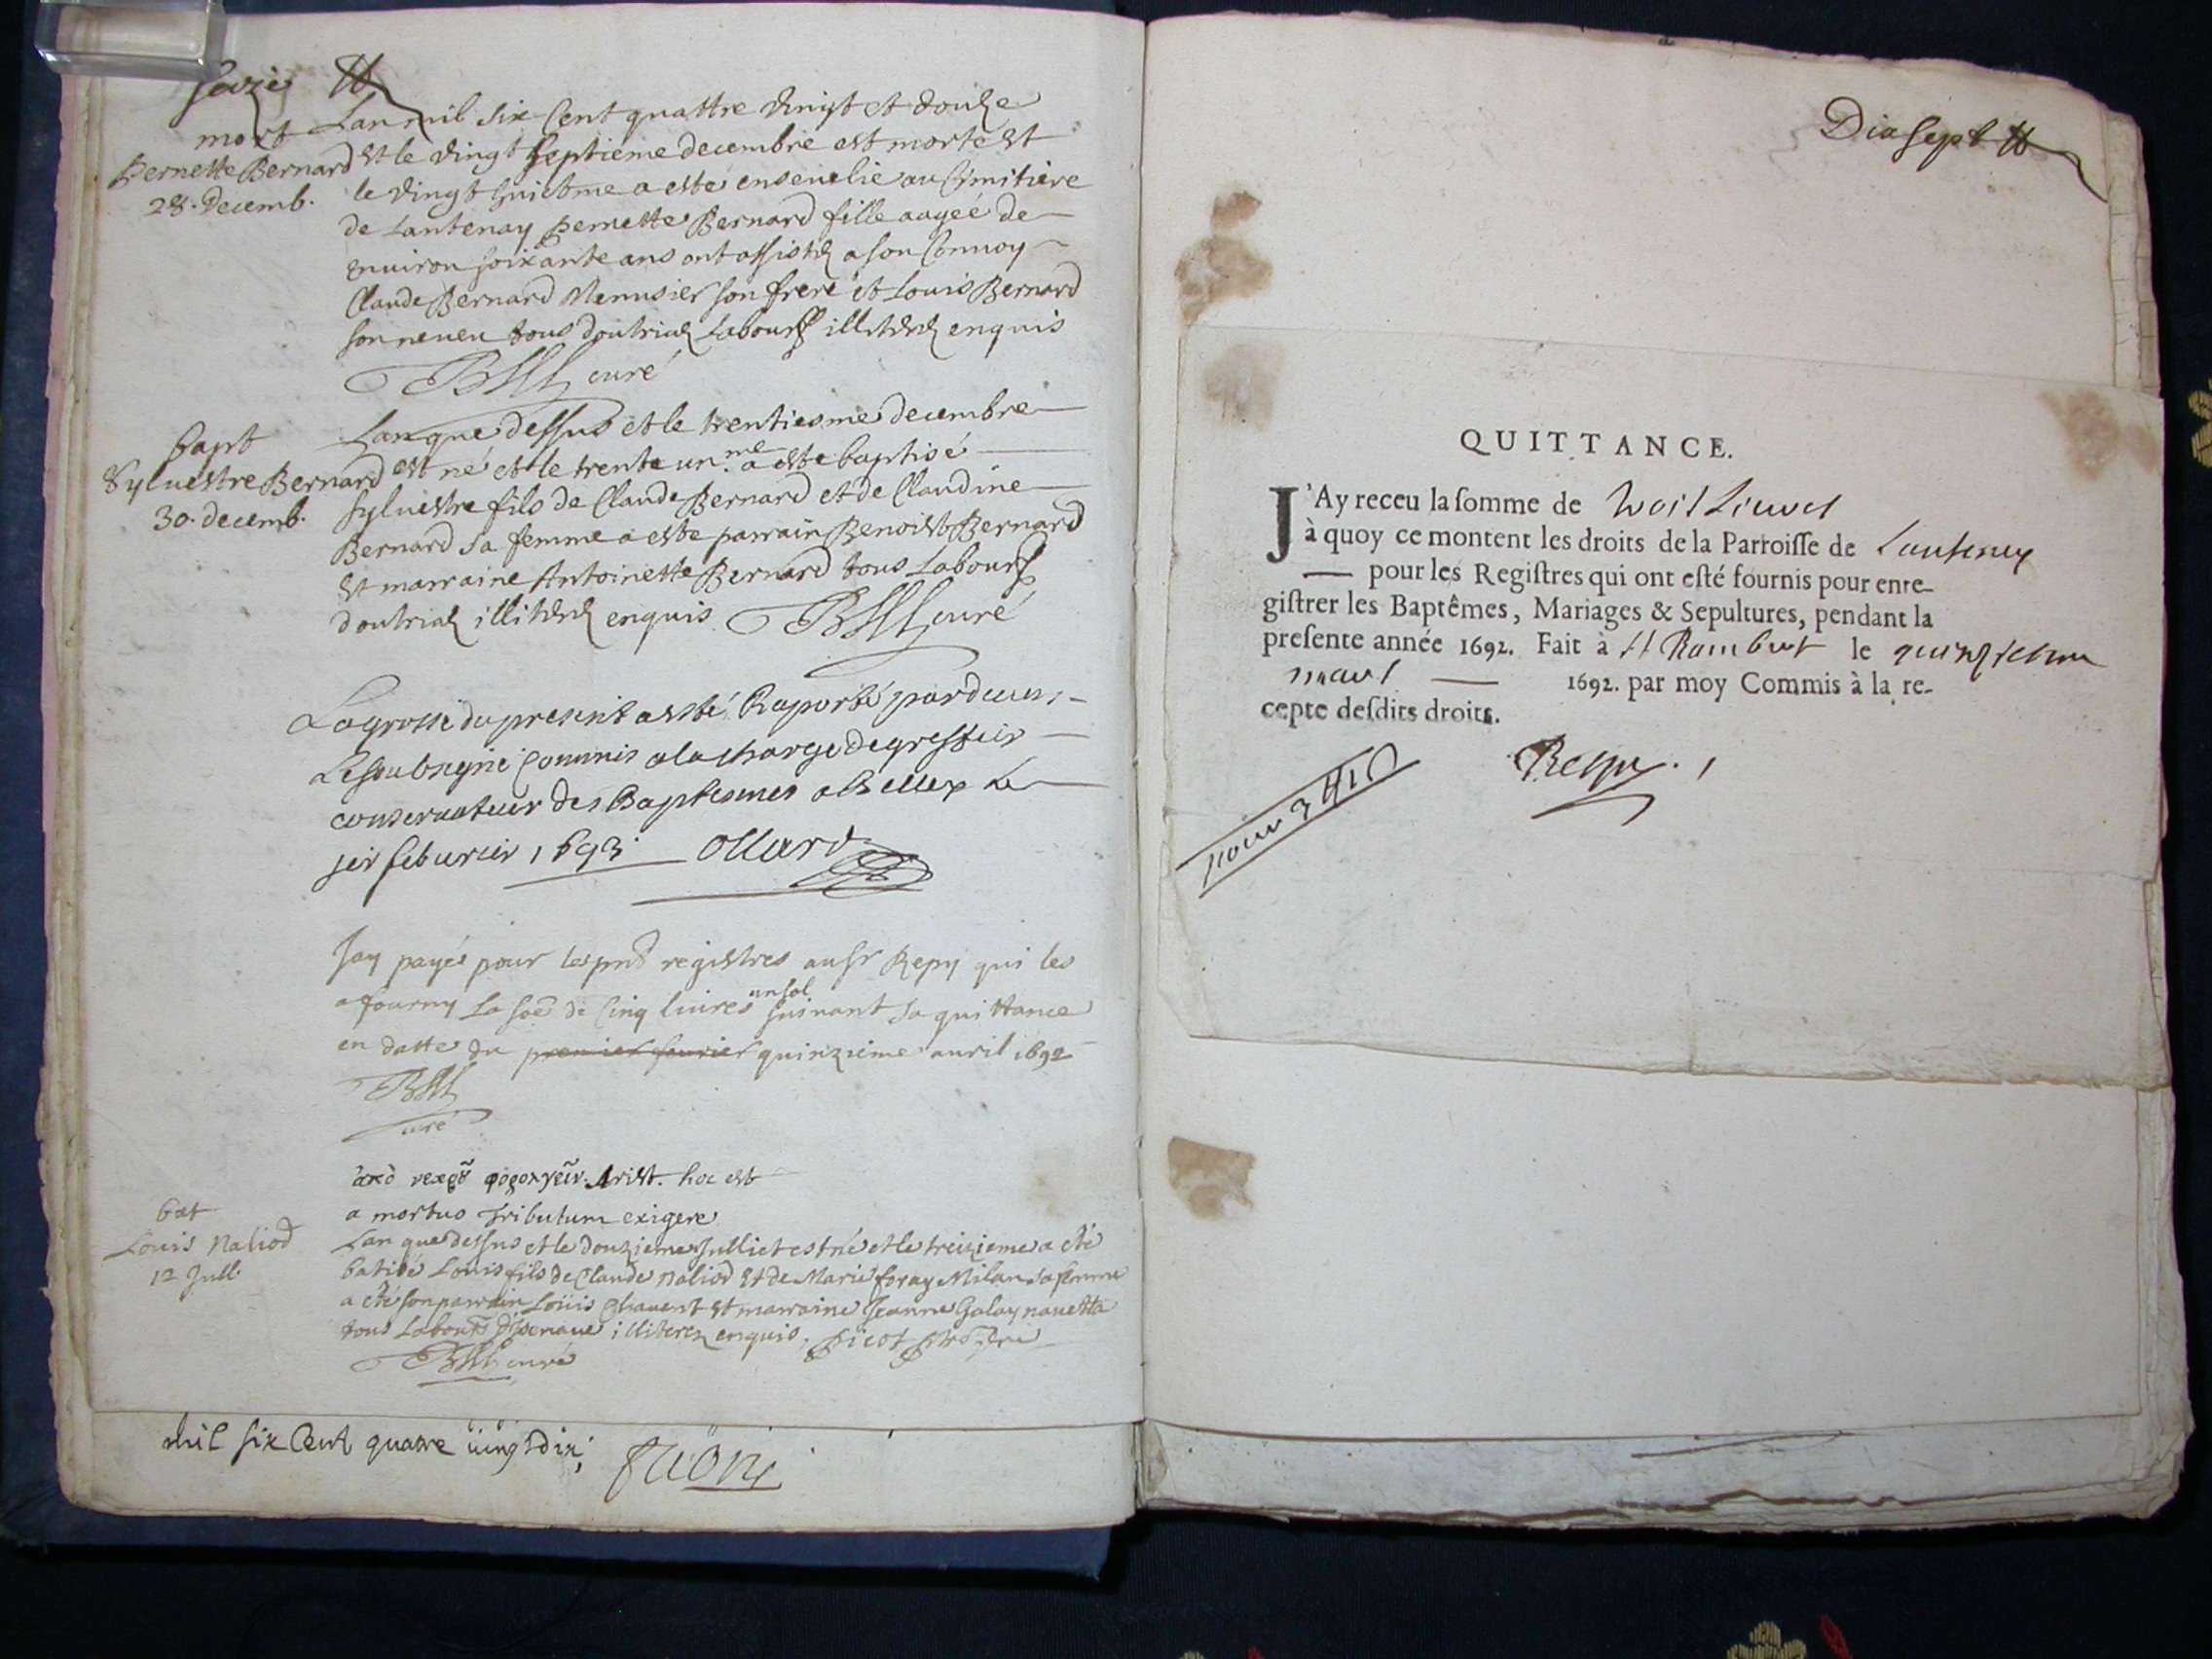 seize
mort
Pernette Bernard
28. Decemb.
Lan mil six Cent quattre vingt et douze
et le vingt septieme decembre est morte et
le vingt huictme a esté enseuelie au Cymitiere
de Lantenay pernette Bernard fille aageé de
enuiron soixante ans ont assistez a son Conuoy
Claude Bernard Menusier son frere et Louis Bernard
son neueu tous doutriaz Labours illiterez enquis
curé
bapt
Syluestre Bernard
30. decemb.
Lan que dessus et le trentiesme decembre
est né et le trente un.me a esté baptisé
syluestre fils de Claude Bernard et de Claudine
Bernard sa femme a esté parrain Benoist Bernard
et marraine Antoinette Bernard tous Labours
doutriaz illiterez enquis curé
La grosse du present a esté Raporté pardeuers
Le soubsigné Commis a la charge de greffier
conseruateur des Baptesmes a Belley Le
feburier 1693 Ollard
Jay payés pour les pnts registres au sr Repy qui les
a fourny La soe de Cinq liures un sol suiuant sa quittance
en datte du premier feurier quinzieme auril 1692
curé
ἀπὸ νεκροῦ φορολογεῖν. Arist. hoc est
a mortuo tributum exigere
bat
Louis Naliod
12 Jull.
Lan que dessus et le douzieme Julliet est né et le treizieme a eté
batisé Louis fils de Claude naliod et de Marie foray Milan sa femme
a eté son parrain Loüis Chauent et marraine Jeanne Galay nauetta
tous Labours illiterez enquis.
curé
mil six Cent quatre uingt dix;
Dix sept
QUITTANCE.
J'Ay receu la somme de Liures
à quoy ce montent les droits de la Parroisse de Lantenay
— pour les Registres qui ont esté fournis pour enre-
gistrer les Baptêmes, Mariages & Sepultures, pendant la
presente année 1692. Fait à St Rambert le quinziesme
1692. par moy Commis à la re-
cepte desdits droits.
Repy